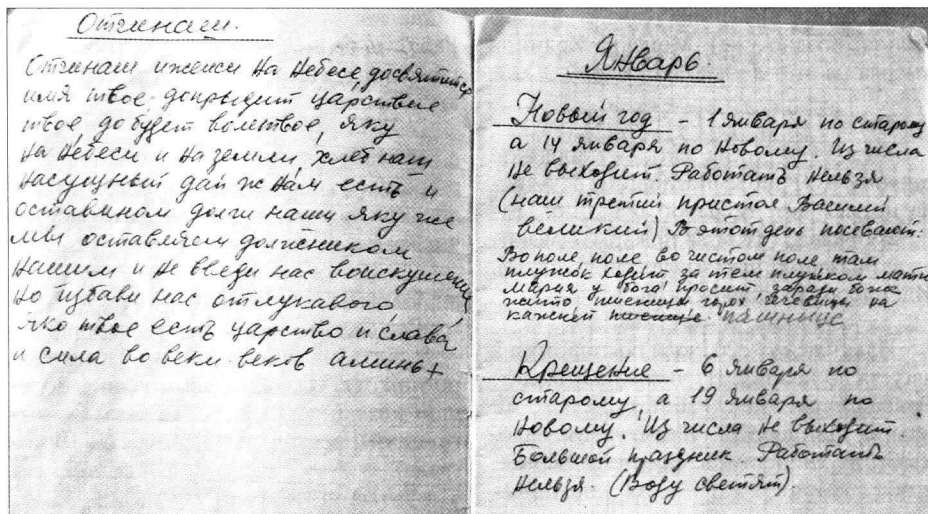 Отчинаш.
Отчинаш ижеиси на небесе, досвятится
имя твое, допрыдит царствие
твое, до будет волетвое, яку
на небеси и на земли, хлеб наш
насущный дай ж нам есть и
оставином долги наши яку же
мы оставляем должником
нашим и не введи нас воискушение
но избави нас отлукавого
яко твое есть царство и слава
и сила во веки веков аминь +
Январь.
Новый год - 1 января по старому
а 14 января по новому. Из числа
не выходит. Работать нельзя
(наш третий пристол Василий
великий) В этот день посевают:
Во поле, поле, во чистом поле, там
плужок ходит за тем плужком мати
Мария у бога просит зароди боже
жито, пшеницы горох чечевицы на
кажней пшенице пашныце
Крещение - 6 января по
старому, а 19 января по
новому. Из числа не выходит.
Большой праздник. Работать
нельзя. (Воду светят).